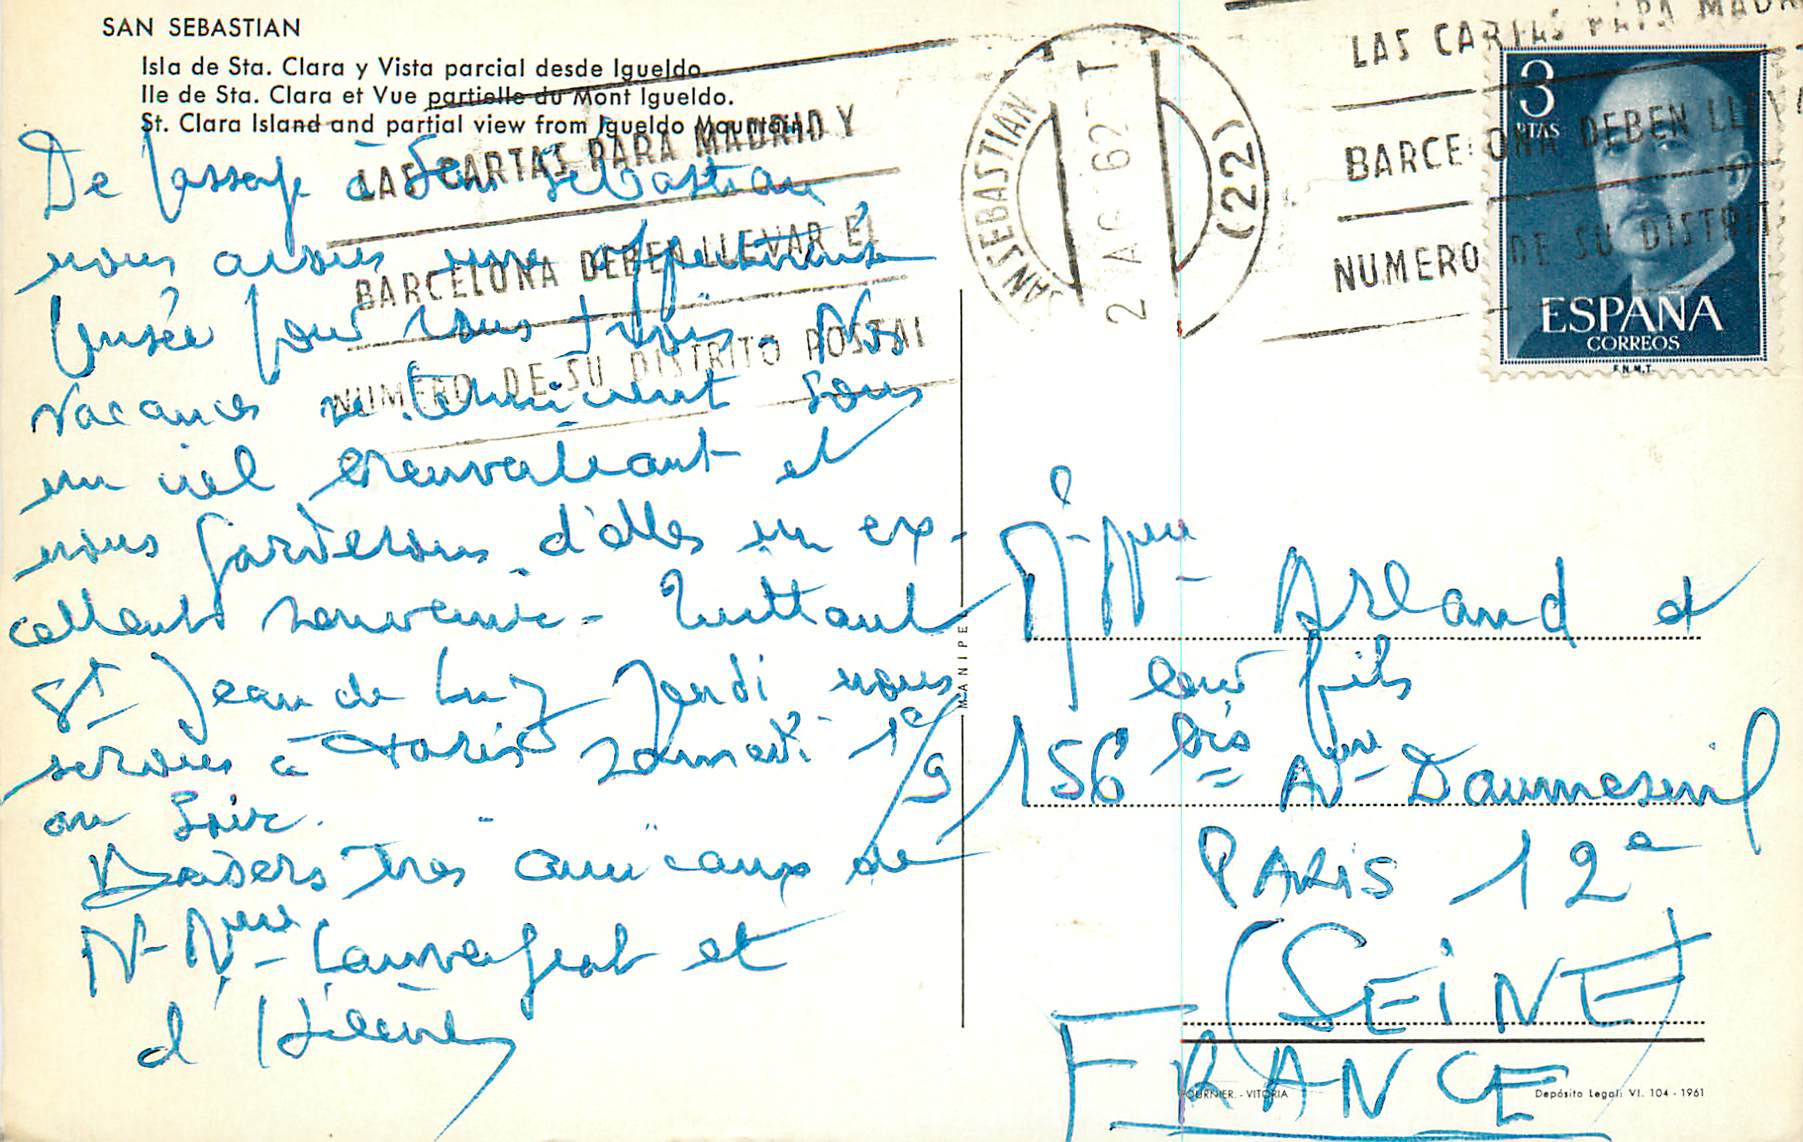 SAN SEBASTIAN
Isla de Sta. Clara y Vista parcial desde Igueldo.
Ile de Sta. Clara et Vue partielle du Mont Igueldo.
St. Clara Island and partial view from Igueldo Mountain.
De passage à San Sebastian
nous avons une affectueuse
pensée pour vous trois. Nos
vacances se terminent sous
un ciel et
nous garderons d'elles un ex-
cellent souvenir - Quittant
St Jean de Luz Jeudi nous
serons à Paris samedi 1er/9
au soir.
Baisers très amicaux de
Mr Mme et
d'Hélène
LAS CARTAS PARA MADRID Y
BARCELONA DEBEN LLEVAR EL
NUMERO DE SU DISTRITO POSTAL
SAN SEBASTIAN
(22)
2 AG 62 T
LAS CARTAS PARA MADRI
BARCELONA DEBEN LLEVA
NUMERO DE SU DISTRIT
3
PTAS
ESPAÑA
CORREOS
F.N.M.T.
MANIPE
Mr Mme Arland et
leur fils
156 bis Avenue Daumesnil
PARIS 12e
(SEINE)
FRANCE
FOURNIER. - VITORIA
Depósito Legal: VI. 104 - 1961